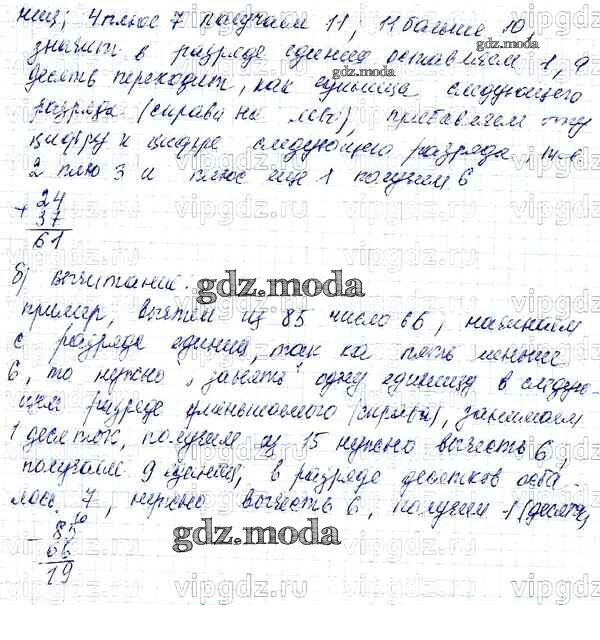 ниц; 4 плюс 7 получаем 11, 11 больше 10,
значит в разряде единиц оставляем 1, а
десять переходит, как единица следующего
разряда (справа на лево), прибавляем эту
цифру к цифре следующего разряда, т.е.
2 плюс 3 и плюс еще 1 получим 6
+ 24
37
61
б) вычитание.
пример, вычтем из 85 число 66, начинаем
с разряда единиц, так ка пять меньше
6, то нужно "занять" одну единицу в следую-
щем разряде уменьшаемого (справа), занимаем
1 десяток, получим из 15 нужно вычесть 6,
получаем 9 единиц, в разряде десятков оста-
лось 7, нужно вычесть 6, получим 1 (десяток)
10
- 85
66
19
gdz.moda
gdz.moda
gdz.moda
gdz.moda
gdz.moda
gdz.moda
vipgdz.ru